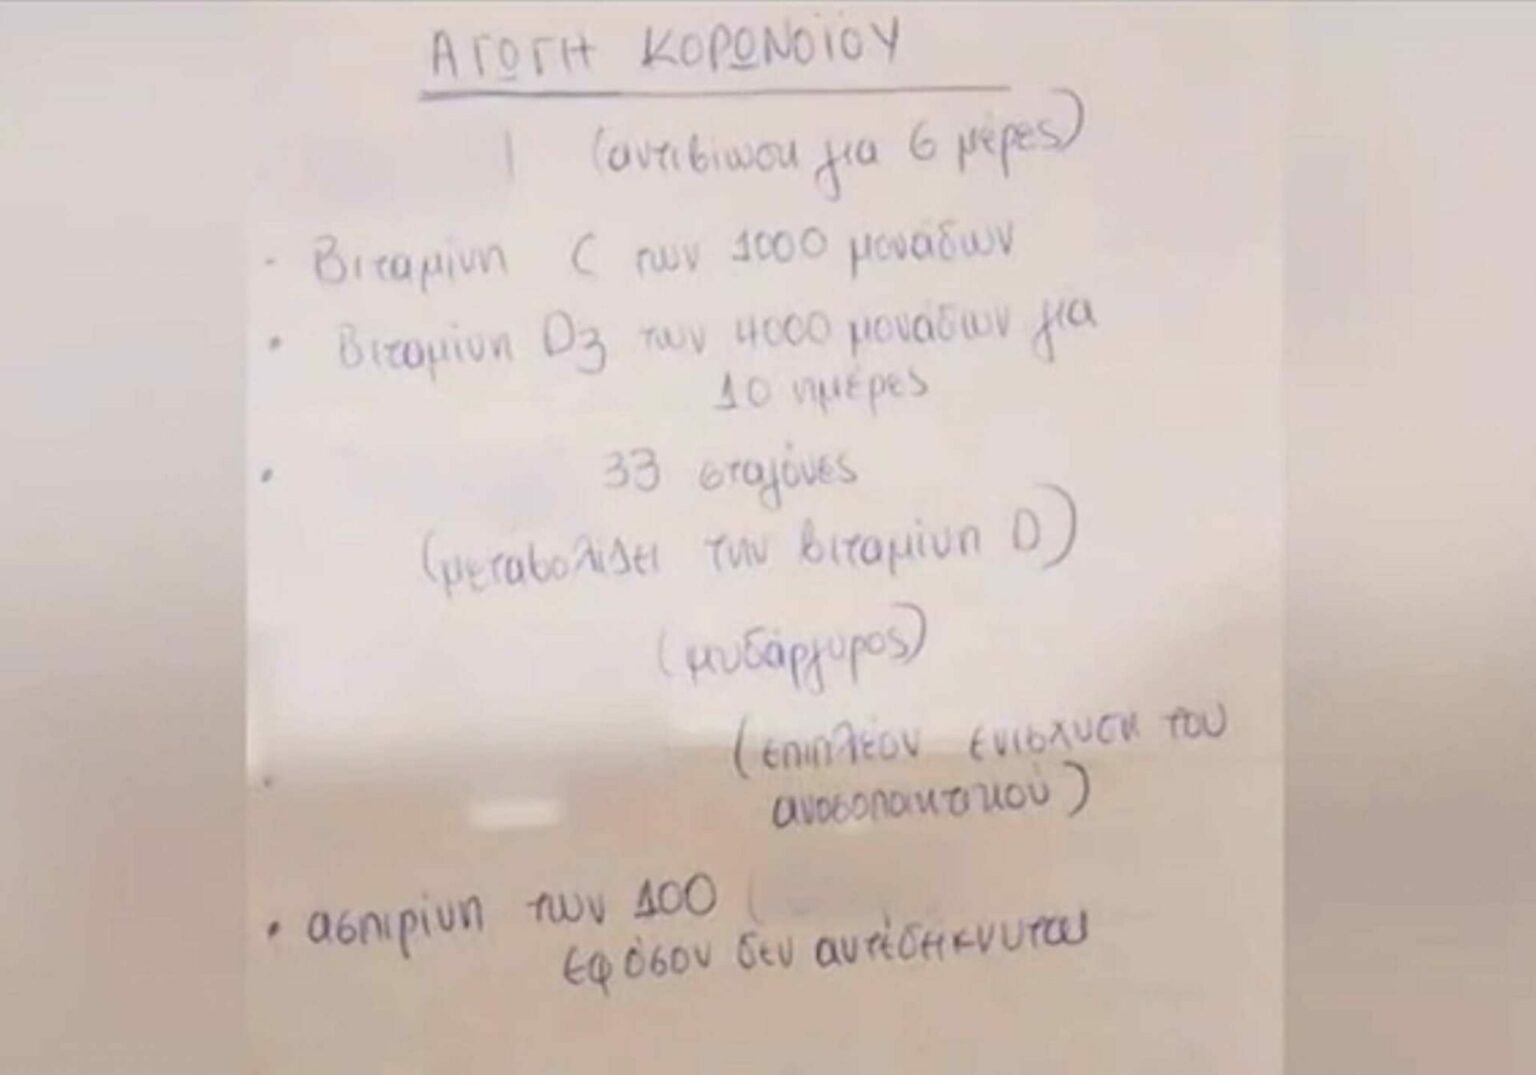 ΑΓΩΓΗ ΚΟΡΩΝΟΪΟΥ
(αντιβίωση για 6 μέρες)
· Βιταμίνη C των 1000 μονάδων
· Βιταμίνη D3 των 4000 μονάδων για
10 ημέρες
· 33 σταγόνες
(μεταβολίζει την βιταμίνη D)
(μυδάργυρος)
(επιπλέον ενίσχυση του
ανοσοποιητικού)
· ασπιρίνη των 100 (
εφόσον δεν αντεδήκνυται